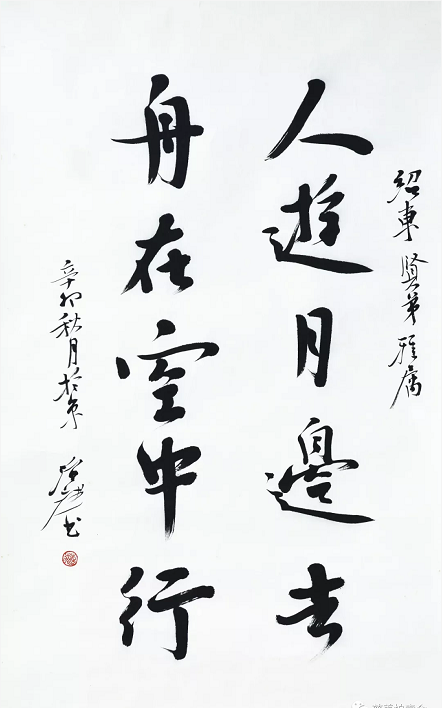 紹東賢弟雅屬
人遊月邊去
舟在空中行
辛卯秋月於京